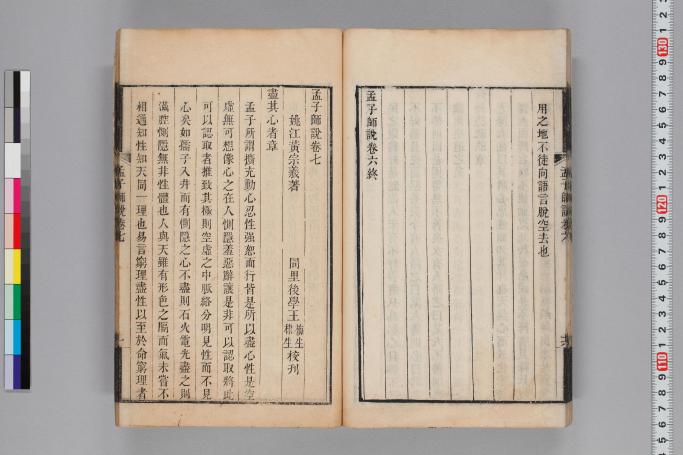 用之地不徒向語言脫空去也
孟子師說卷六終
孟子師說卷七
姚江黃宗羲著 同里後學王
梅生
校刊
盡其心者章
孟子所謂擴充動心忍性強恕而行皆是所以盡心性是空
虛無可想像心之在人惻隱羞惡辭讓是非可以認取將此
可以認取者推致其極則空虛之中脈絡分明見性而不見
心矣如孺子入井而有惻隱之心不盡則石火電光盡之則
滿腔惻隱無非性體也人與天雖有形色之隔而氣未嘗不
相通知性知天同一理也易言窮理盡性以至於命窮理者
孟子師說卷七
孟子師說卷六
130
120
110